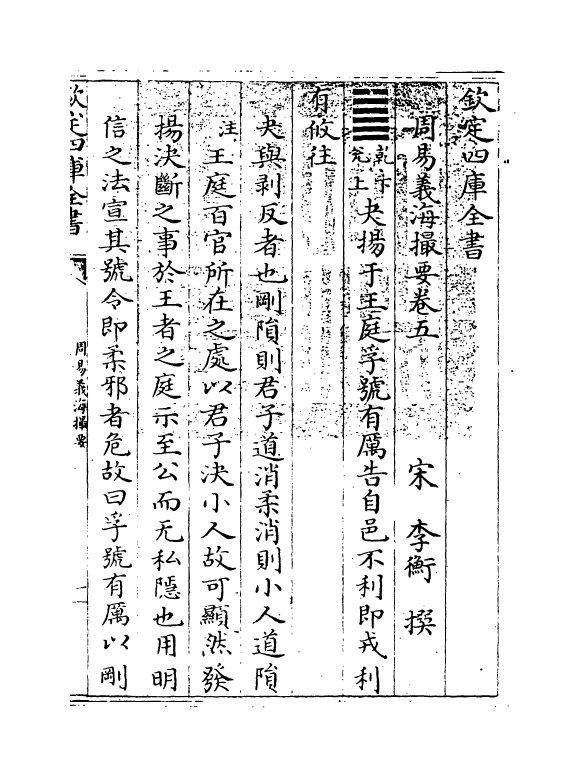 欽定四庫全書
周易義海撮要卷五
宋 李衡 撰
䷪乾下兌上夬揚于王庭孚號有厲告自邑不利即戎利
有攸往
夬與剥反者也剛隕則君子道消柔消則小人道隕
注王庭百官所在之處以君子決小人故可顯然發
揚決斷之事於王者之庭示至公而无私隱也用明
信之法宣其號令即柔邪者危故曰孚號有厲以剛
欽定四庫全書
周易義海撮要
一